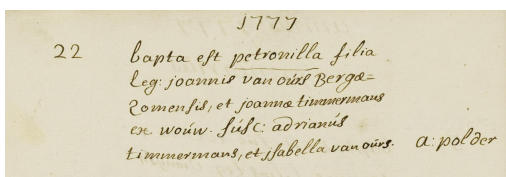 1777
22 bapta est petronilla filia
leg: joannis van oürs Bergæ=
Zomensis, et joannæ timmermans
ex woúw. súsc: adrianús
timmermans, et jsabella van oürs. a: polder